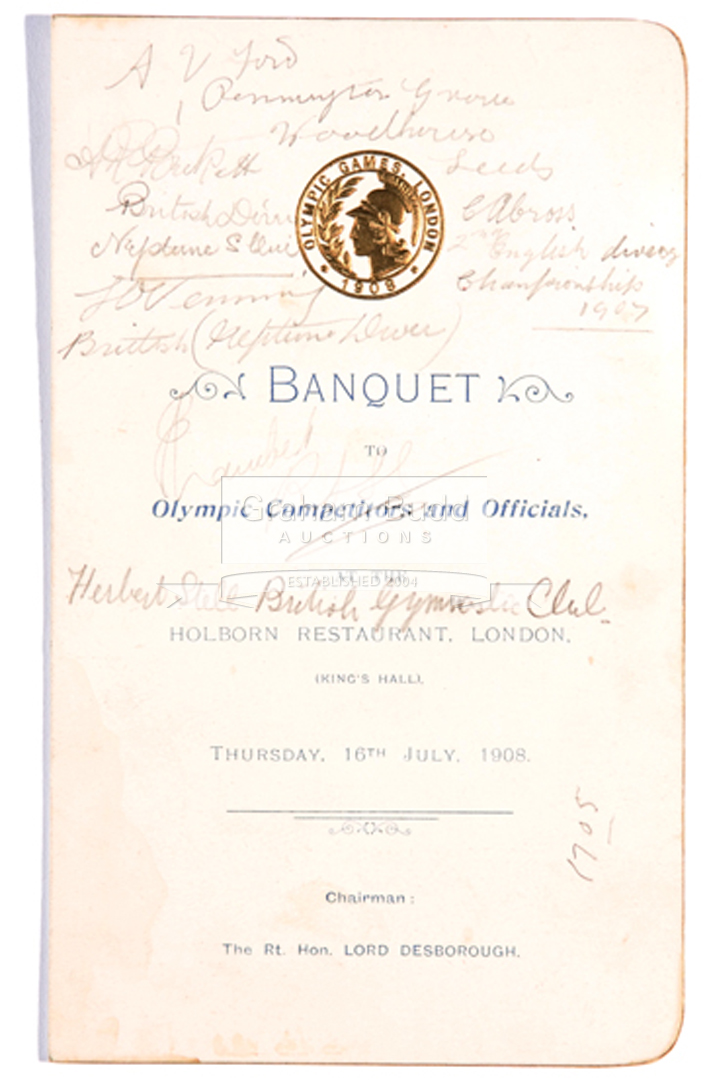 A V Ford
1 Pennington Grove
Woodhouse
Leeds
British Diver
Neptune S Club
OLYMPIC GAMES, LONDON
1908
C Cross
2nd English diving
Championship
1907
British (Neptune Diver)
BANQUET
TO
Olympic Competitors and Officials,
Graham Budd
AUCTIONS
ESTABLISHED 2004
AT THE
Herbert Stell British Gymnastic Club.
HOLBORN RESTAURANT, LONDON,
(KING'S HALL).
THURSDAY, 16TH JULY, 1908.
1705
Chairman:
The Rt. Hon. LORD DESBOROUGH.